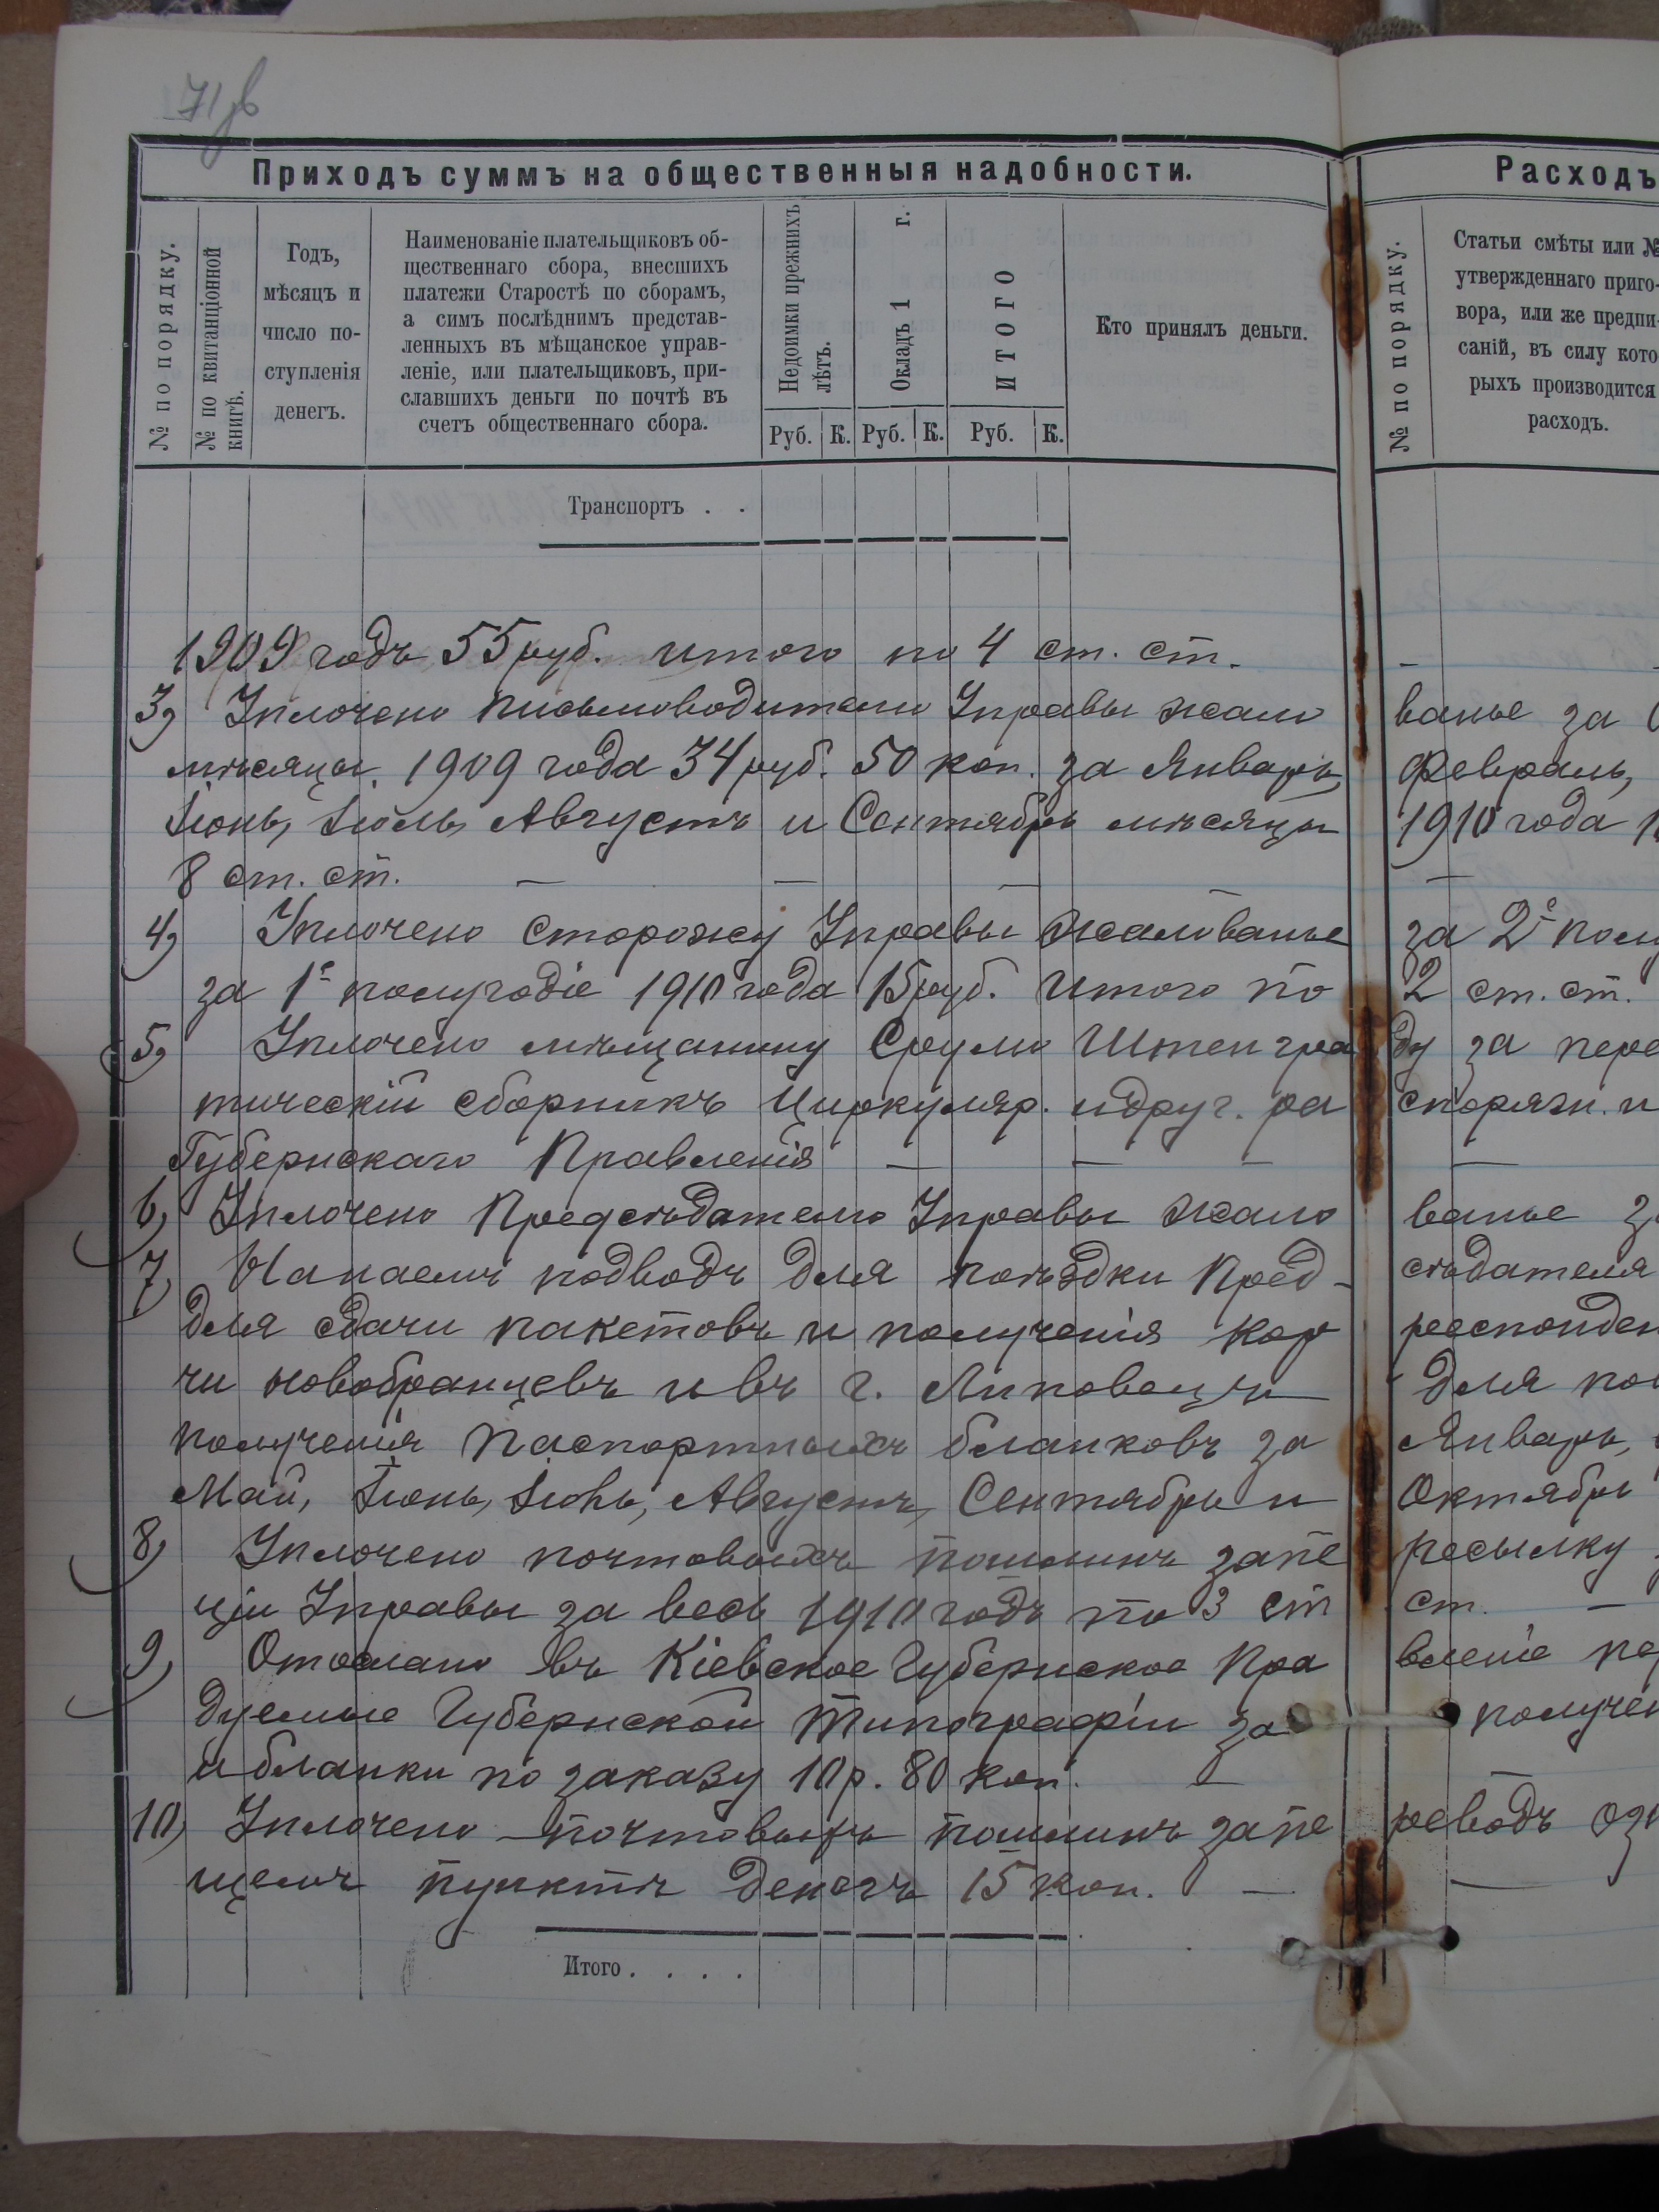 71 зв
Приходъ суммъ на общественныя надобности.
№ по порядку.
№ по квитанціонной
книгѣ.
Годъ,
мѣсяцъ и
число по-
ступленія
денегъ.
Наименованіе плательщиковъ об-
щественнаго сбора, внесшихъ
платежи Старостѣ по сборамъ,
а симъ послѣднимъ представ-
ленныхъ въ мѣщанское управ-
леніе, или плательщиковъ, при-
славшихъ деньги по почтѣ въ
счетъ общественнаго сбора.
Недоимки прежнихъ
лѣтъ.
Окладъ 1 г.
ИТОГО
Руб. К. Руб. К. Руб. К.
Кто принялъ деньги.
Расходъ
№ по порядку.
Статьи смѣты или №
утвержденнаго приго-
вора, или же предпи-
саній, въ силу кото-
рыхъ производится
расходъ.
Транспортъ . .
1909 годъ 55 руб. итого по 4 ст. ст. — —
3, Уплочено письмоводителю Управы жало ванье за
мѣсяцы 1909 года 34 руб. 50 коп. за Январь, Февраль,
Іюнь, Іюль, Августъ и Сентябрь мѣсяцы 1910 года
8 ст. ст. — — — —
4, Уплочено сторожу Управы жалованье за 2е полу
за 1е полугодіе 1910 года 15 руб. Итого по 2 ст. ст.
5, Уплочено мѣщанину Срулю Штенгра ду за пере
тическій сборникъ Циркуляр. и друг. ра споряж. и
Губернскаго Правленія — — — —
6, Уплочено Предсѣдателю Управы жало ванье за
7, Напаемъ подводъ для поѣздки Пред- сѣдателя
для сдачи пакетовъ и полученія кор респонден
чи новобранцевъ и въ г. Липовецъ для по
полученія паспортныхъ бланковъ за Январь,
Май, Іюнь, Іюль, Августъ, Сентябрь и Октябрь
8, Уплочено почтовыхъ пошлинъ за пе ресылку
ціи Управы за весь 1910 годъ по 3 ст ст. —
9, Отослано въ Кіевское Губернское Пра вленіе
дуемые Губернской Типографіи за получен
и бланки по заказу 10 р. 80 коп. — —
10, Уплочено почтовыхъ пошлинъ за пе реводъ озн
щемъ пунктѣ денегъ 15 коп. — —
Итого . . . .